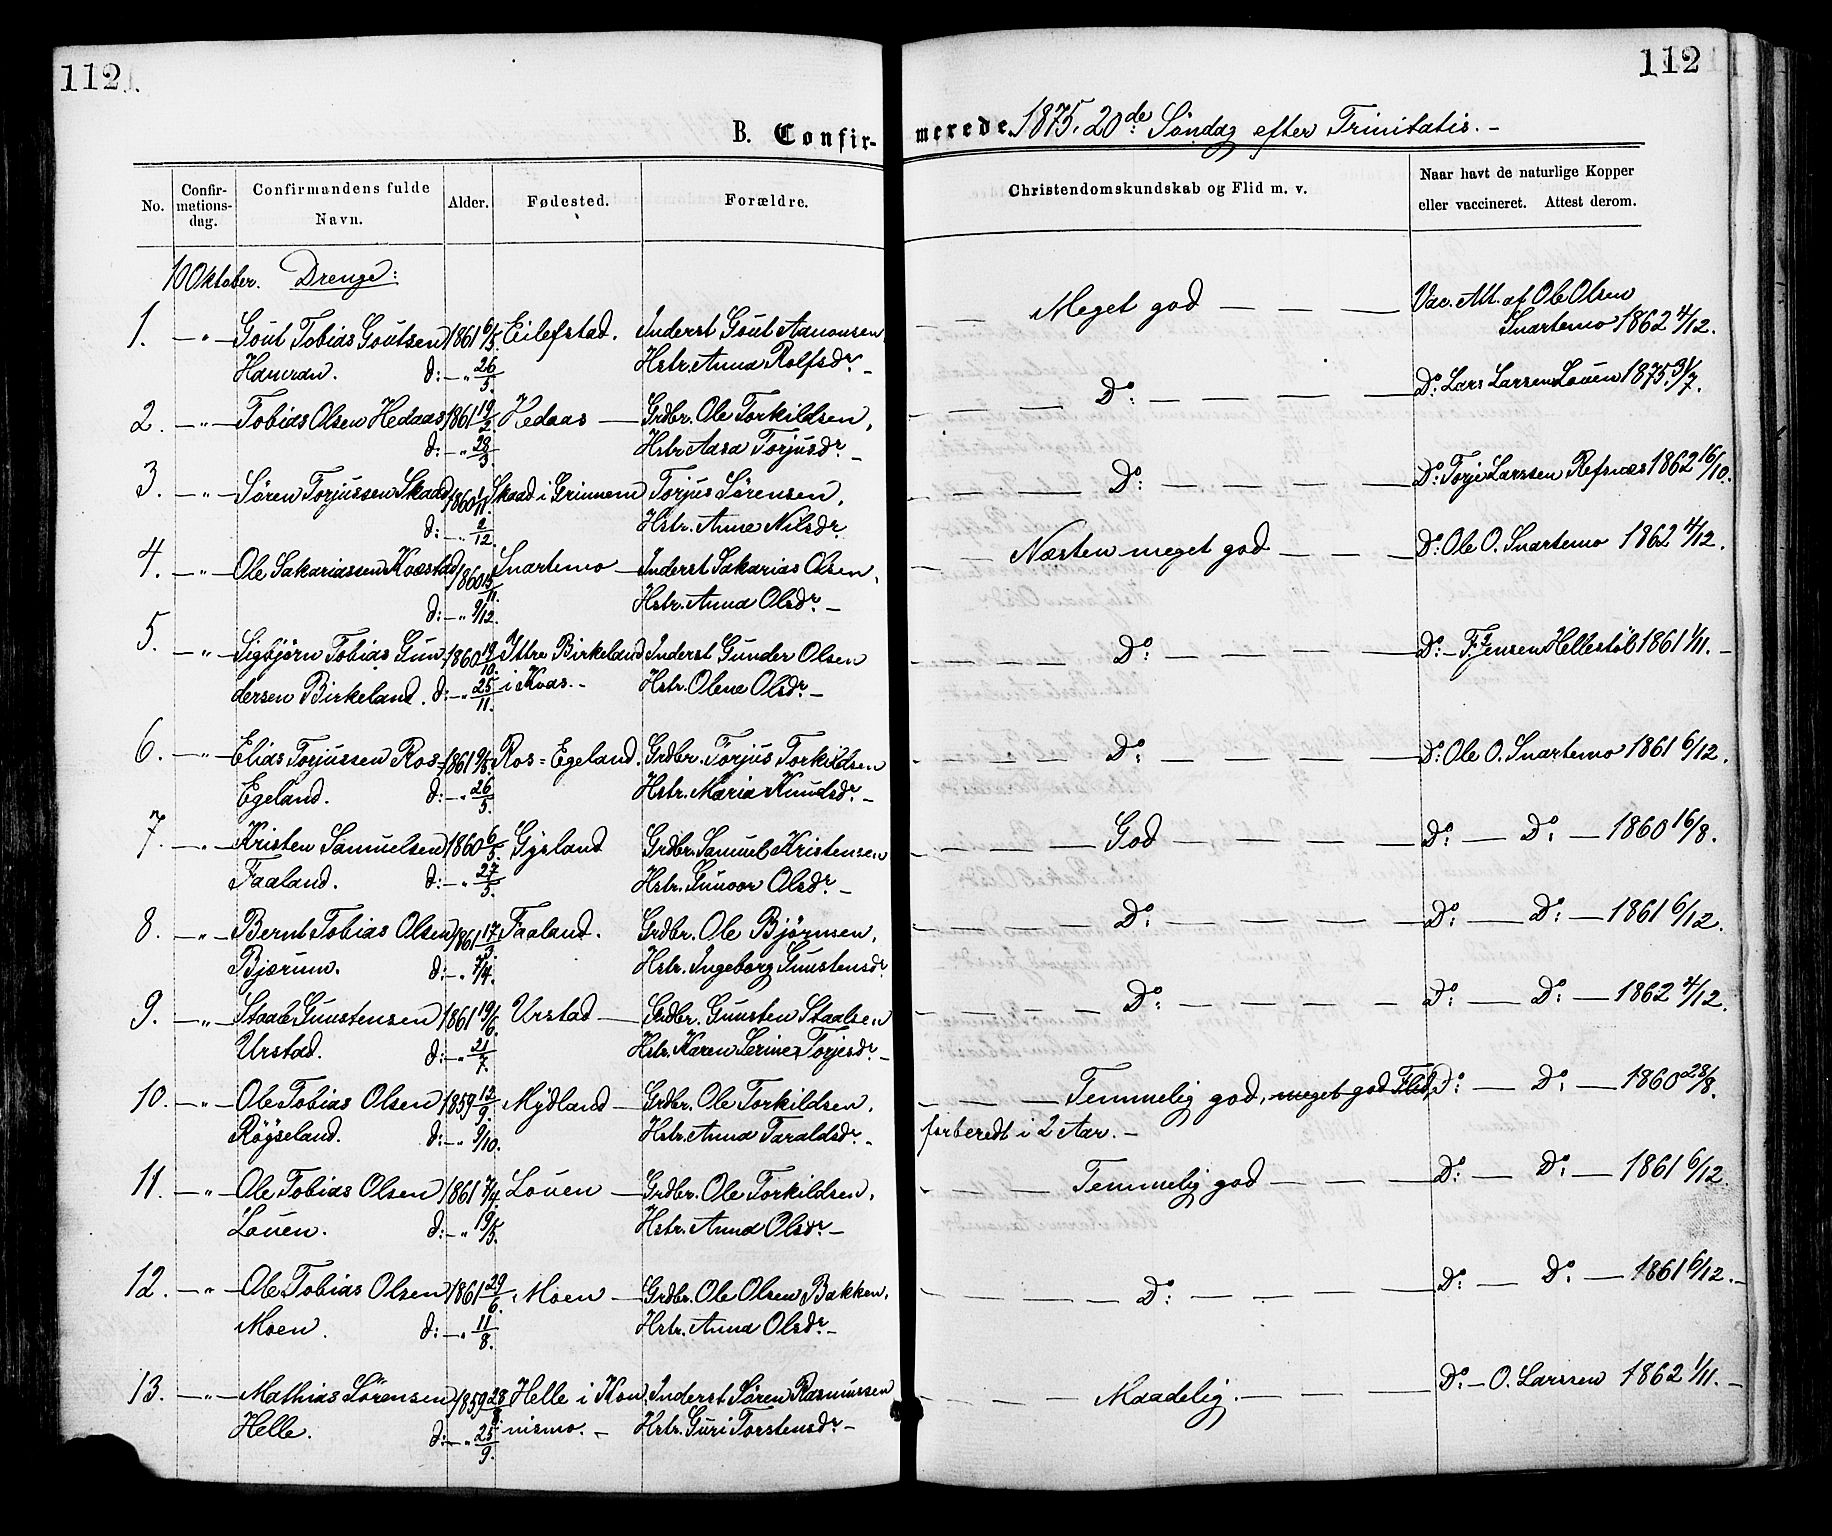 112
112
B. Confirmerede 1875. 20de Søndag efter Trinitatis. –
No.
Confirmationsdag.
Confirmandens fulde Navn.
Alder.
Fødested.
Forældre.
Christendomskundskab og Flid m. v.
Naar havt de naturlige Kopper eller vaccineret. Attest derom.
10 Oktober. Drenge:
1. – " – Gout Tobias Goutsen 1861 6/5. Eilefstad. Inderst Gout Aanonsen, — Meget god — Vac. Att. af Ole Olsen
d: – " 26/5. Hstr. Anna Rolfsdr. – Snartemo 1862 4/12.
2. – " – Tobias Olsen Hedaas 1861 19/2. Hedaas — Grdbr. Ole Torkildsen, — Do: — Do: Lars Larsen Louen 1875 31/7.
d: – " 28/3. Hstr. Aasa Torjusdr. –
3. – " – Søren Torjussen Skaad 1860 1/11. Skaad i Grinnem Torjus Sørensen, — Do: — Do: Torje Larssen Refsnæs 1862 16/10.
d: – " 2/12. Hstr. Anne Nilsdr.
4. – " – Ole Sakariassen Kvæstad 1860 15/11. Snartemo — Inderst Sakarias Olsen, — Næsten meget god — Do: Ole O. Snartemo 1862 4/12.
d: – " 9/12. Hstr. Anna Olsdr. –
5. – " – Sigbjørn Tobias Gun 1860 19/10. Ittre Birkeland Inderst Gunder Olsen — Do: — Do: – F. Jensen Hellestøl 1861 1/11. –
dersen Birkeland. d: – " 25/11. i Kvas. – Hstr. Olene Olsdr. –
6. – " – Elias Torjussen Ros= 1861 9/5. Ros=Egeland. Grdbr. Torjus Torkildsen — Do: — Do: Ole O. Snartemo 1861 6/12.
Egeland. d: – " 26/5. Hstr. Maria Knudsdr. –
7. – " – Kristen Samuelsen 1860 6/5. Gysland Grdbr. Samuel Kristensen — God — Do: — Do: — 1860 16/8.
Faaland. d: – " 27/5. Hstr. Gunvor Olsdr. –
8. – " – Bernt Tobias Olsen 1861 17/3. Faaland. Grdbr. Ole Bjørnsen, — Do: — Do: — Do: — 1861 6/12.
Bjærum. d: – " 7/4. Hstr. Ingeborg Gunstensdr.
9. – " – Staale Gunstensen 1861 19/6. Urstad — Grdbr. Gunsten Staalsen — Do: — Do: — Do: — 1862 4/12.
Urstad. d: – " 21/7. Hstr. Karen Serine Torjesdr. –
10. – " – Ole Tobias Olsen 1859 12/9. Mydland — Grdbr. Ole Torkildsen, — Temmelig god, meget god Flid, Do: — Do: — 1860 28/8.
Røyseland. d: – " 9/10. Hstr. Anna Taraldsdr. – forberedt i 2 Aar. –
11. – " – Ole Tobias Olsen 1861 7/4. Louen — Grdbr. Ole Torkildsen, — Temmelig god — Do: — Do: — 1861 6/12.
Louen. d: – " 19/5. Hstr. Anna Olsdr. –
12. – " – Ole Tobias Olsen 1861 29/6. Moen — Grdbr. Ole Olsen Bakken, — Do: — Do: — Do: — 1861 6/12. –
Moen. d: – " 11/8. Hstr. Anna Olsdr. –
13. – " – Mathias Sørensen 1859 28/8. Helle i Kon Inderst Søren Rasmussen — Maadelig. — Do: – O. Larssen 1862 1/11. –
Helle. d: – " 25/9. nismo. – Hstr. Guri Torstensdr. –